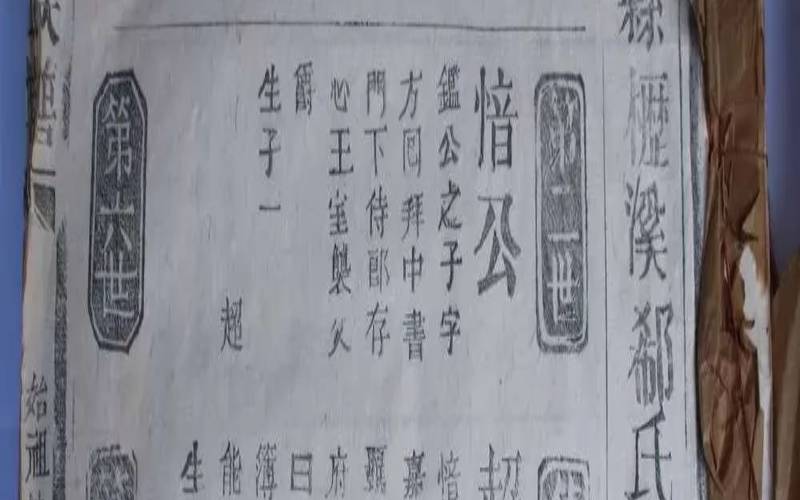 溪郗氏
第二世
愔公
鑑公之子字
方囘拜中書
門下侍郎存
心王室襲父
爵
生子一
超
第六世
超
愔
嘉
府
曰
簿
能
生
族譜
始祖